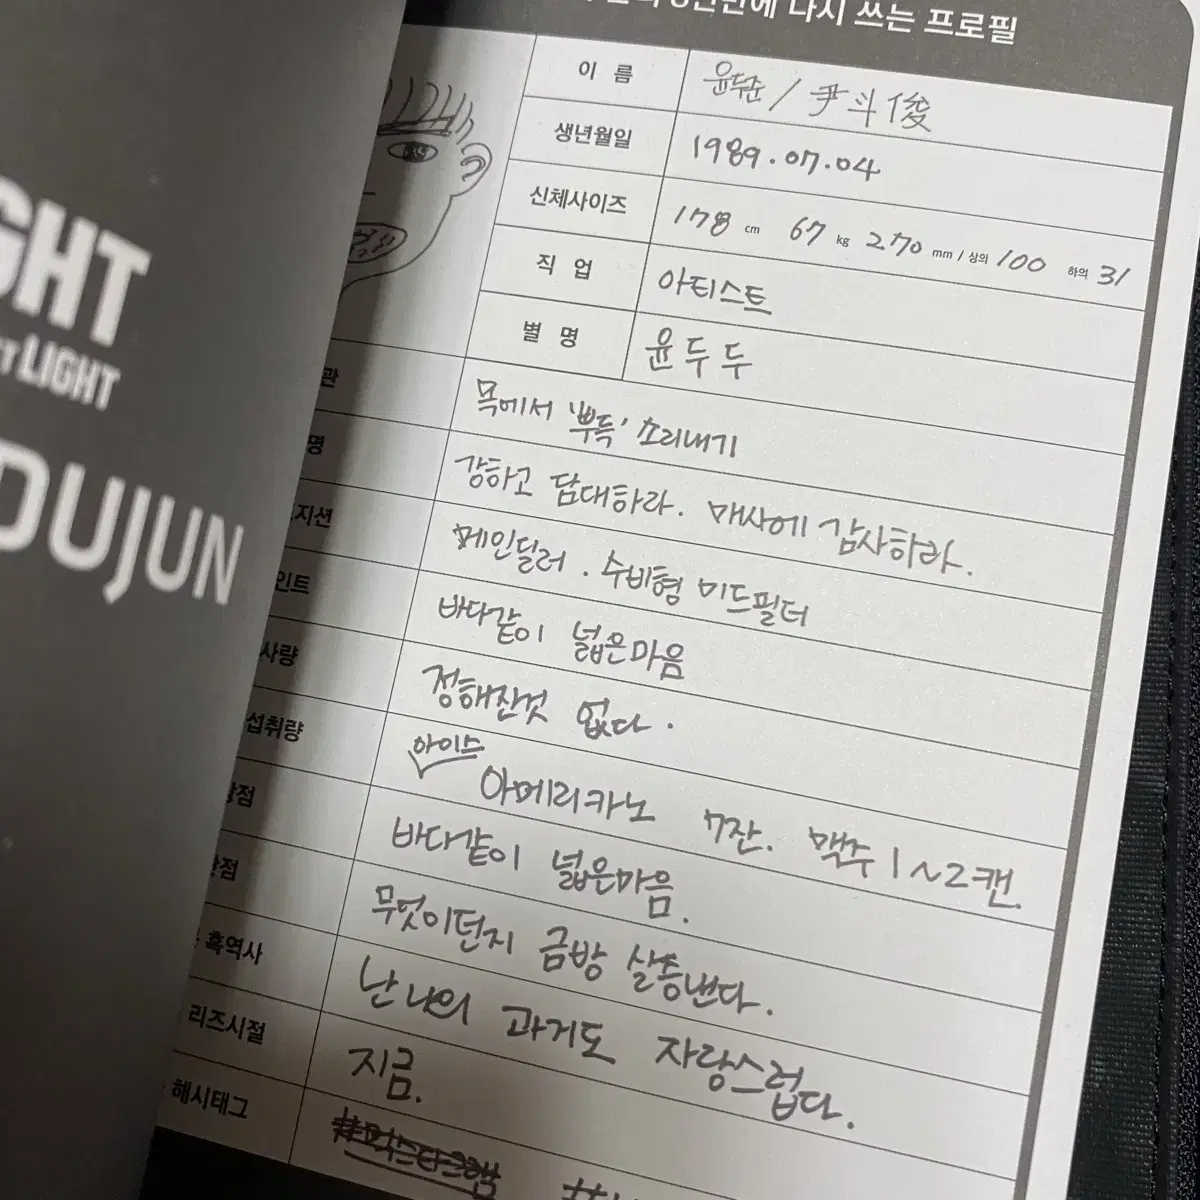 GHT
LIGHT
DUJUN
다시 쓰는 프로필
이 름 윤두준 / 尹斗俊
생년월일 1989.07.04
신체사이즈 178 cm 67 kg 270 mm / 상의 100 하의 31
직 업 아티스트
별 명 윤두두
관 목에서 '뿌득' 소리내기
명 강하고 담대하라. 매사에 감사하라.
지션 메인딜러. 수비형 미드필터
인트 바다같이 넓은마음
사량 정해진것 없다.
섭취량 아이스 아메리카노 7잔. 맥주 1~2캔.
점 바다같이 넓은마음.
점 무엇이던지 금방 싫증낸다.
흑역사 난 나의 과거도 자랑스럽다.
리즈시절 지금.
해시태그 #먹스타그램